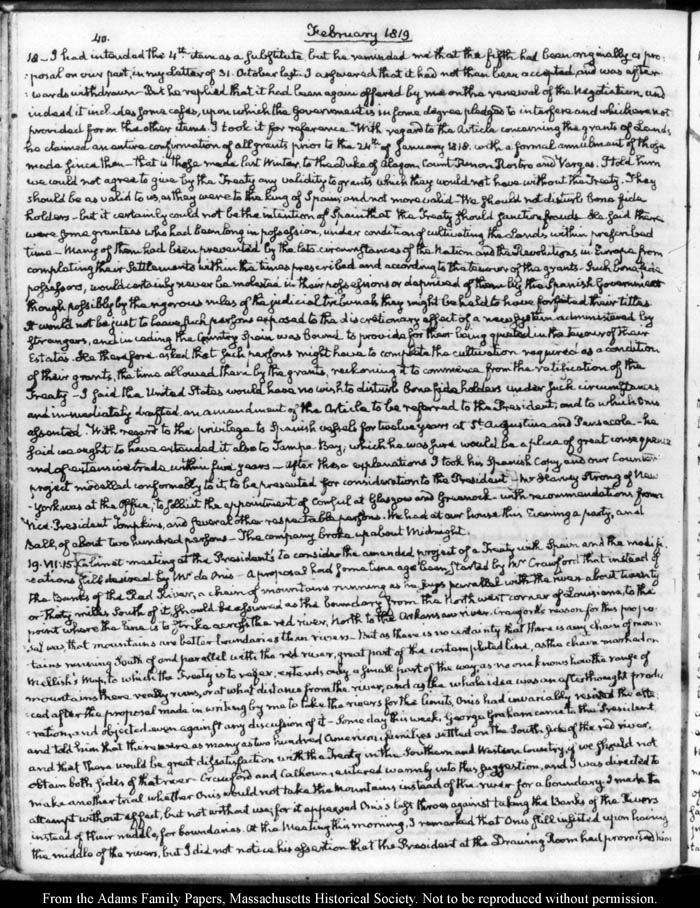 40.
February 1819
18 – I had intended the 4th item as a substitute, but he reminded me that the fifth had been originally a pro-
:posal on our part, in my letter of 31. October last. I answered that it had not then been accepted, and was after-
:wards withdrawn – But he replied that it had been again offered by me on the renewal of the Negotiation, and
indeed it includes some cases, upon which the Government is in some degree pledged to interfere and which are not
provided for in the other items. I took it for reference. With regard to the Article concerning the grants of Lands,
he claimed an entire confirmation of all grants prior to the 24th of January 1818. with a formal annulment of those
made since then – that is those made last Winter, to the Duke of Alagon, Count Punon Rostro and Vargas. I told him
we could not agree to give by the Treaty any validity to grants which they would not have without the Treaty. They
should be as valid to us, as they were to the King of Spain, and not more valid. We should not disturb bona fide
holders – but it certainly could not be the intention of Spain that the Treaty should sanction frauds. He said there
were some grantees who had been long in possession, under condition of cultivating the Lands within prescribed
time – Many of them had been prevented by the late circumstances of the Nation and the Revolutions in Europe from
completing their Settlements within the times prescribed and according to the tenour of the grants. Such bona fide
possessors, would certainly never be molested in their possessions or deprived of them by the Spanish Government
though possibly by the rigorous rules of the judicial tribunals they might be held to have forfeited their titles.
It would not be just to leave such persons exposed to the discretionary effect of a new System administered by
Strangers, and in ceding the Country Spain was bound to provide for their being quieted in the tenour of their
Estates. He therefore asked that such persons might have to complete the cultivation required as a condition
of their grants, the time allowed them by the grants, reckoning it to commence from the ratification of the
Treaty – I said the United States would have no wish to disturb bona fide holders under such circumstances
and immediately drafted an amendment of the Article to be referred to the President, and to which Onis
assented. With regard to the privilege to Spanish vessels for twelve years at St. Augustine and Pensacola – he
said we ought to have extended it also to Tampa Bay, which he was sure would be a place of great consequence
and of extensive trade within five years – After these explanations I took his Spanish Copy, and our Counter
project modelled conformably to it, to be presented for consideration to the President – Mr Harvey Strong of New-
-York was at the Office, to sollicit the appointment of Consul at Glasgow and Greenock – with recommendations from
Vice-President Tompkins, and several other respectable persons. We had at our house this Evening a party, and
Ball, of about two hundred persons – The company broke up about Midnight.
19. VII:15. Cabinet meeting at the President's to consider the amended project of a Treaty with Spain and the modifi-
:cations still desired by Mr de Onis – A proposal had some time ago been started by Mr Crawford that instead of
the Banks of the Red River, a chain of mountains running as he says parallel with the river about twenty
or thirty miles South of it, should be assumed as the boundary from the North west corner of Louisiana, to the
point where the line is to strike across the red river, North to the Arkansaw river. Crawford's reason for this propo-
:sal was, that mountains are better boundaries than rivers – But as there is no certainty that there is any chain of moun-
:tains running South of and parallel with the red river, great part of the contemplated line, as the chain marked on
Mellish's Map, to which the Treaty is to refer, extends only a small part of the way, as no one knows how the range of
mountains there really runs, or at what distance from the river, and as the whole idea was an afterthought produ-
:ced after the proposal made in writing by me to take the rivers for the limits, Onis had invariably resisted the alte-
:ration, and objected even against any discussion of it – Some day this week, George Graham came to the President
and told him that there were as many as two hundred American families settled on the South side of the red river,
and that there would be great dissatisfaction with the Treaty in the Southern and Western Country, if we should not
obtain both sides of that river – Crawford and Calhoun, entered warmly into this suggestion, and I was directed to
make another trial whether Onis would not take the mountains instead of the river for a boundary. I made the
attempt without effect, but not without use; for it appeared Onis's last throes against taking the Banks of the Rivers
instead of their middle, for boundaries. At the Meeting this morning, I remarked that Onis still insisted upon having
the middle of the rivers, but I did not notice his assertion that the President at the Drawing Room had promised him
From the Adams Family Papers, Massachusetts Historical Society. Not to be reproduced without permission.